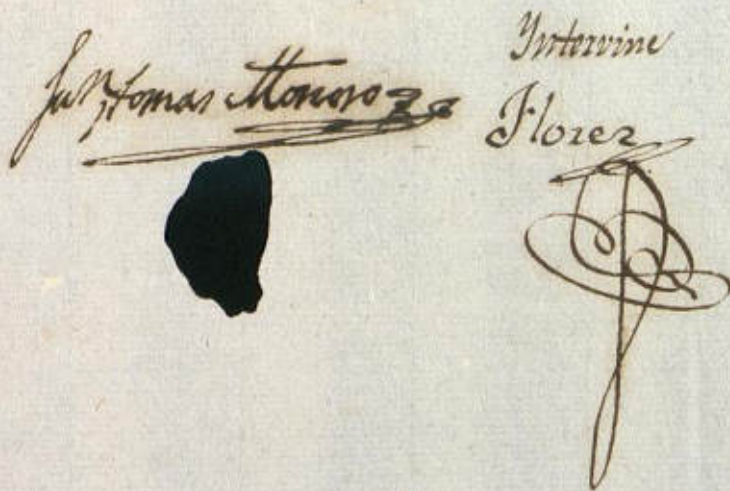 Juⁿ Tomas Monoro
Yntervine
Florez